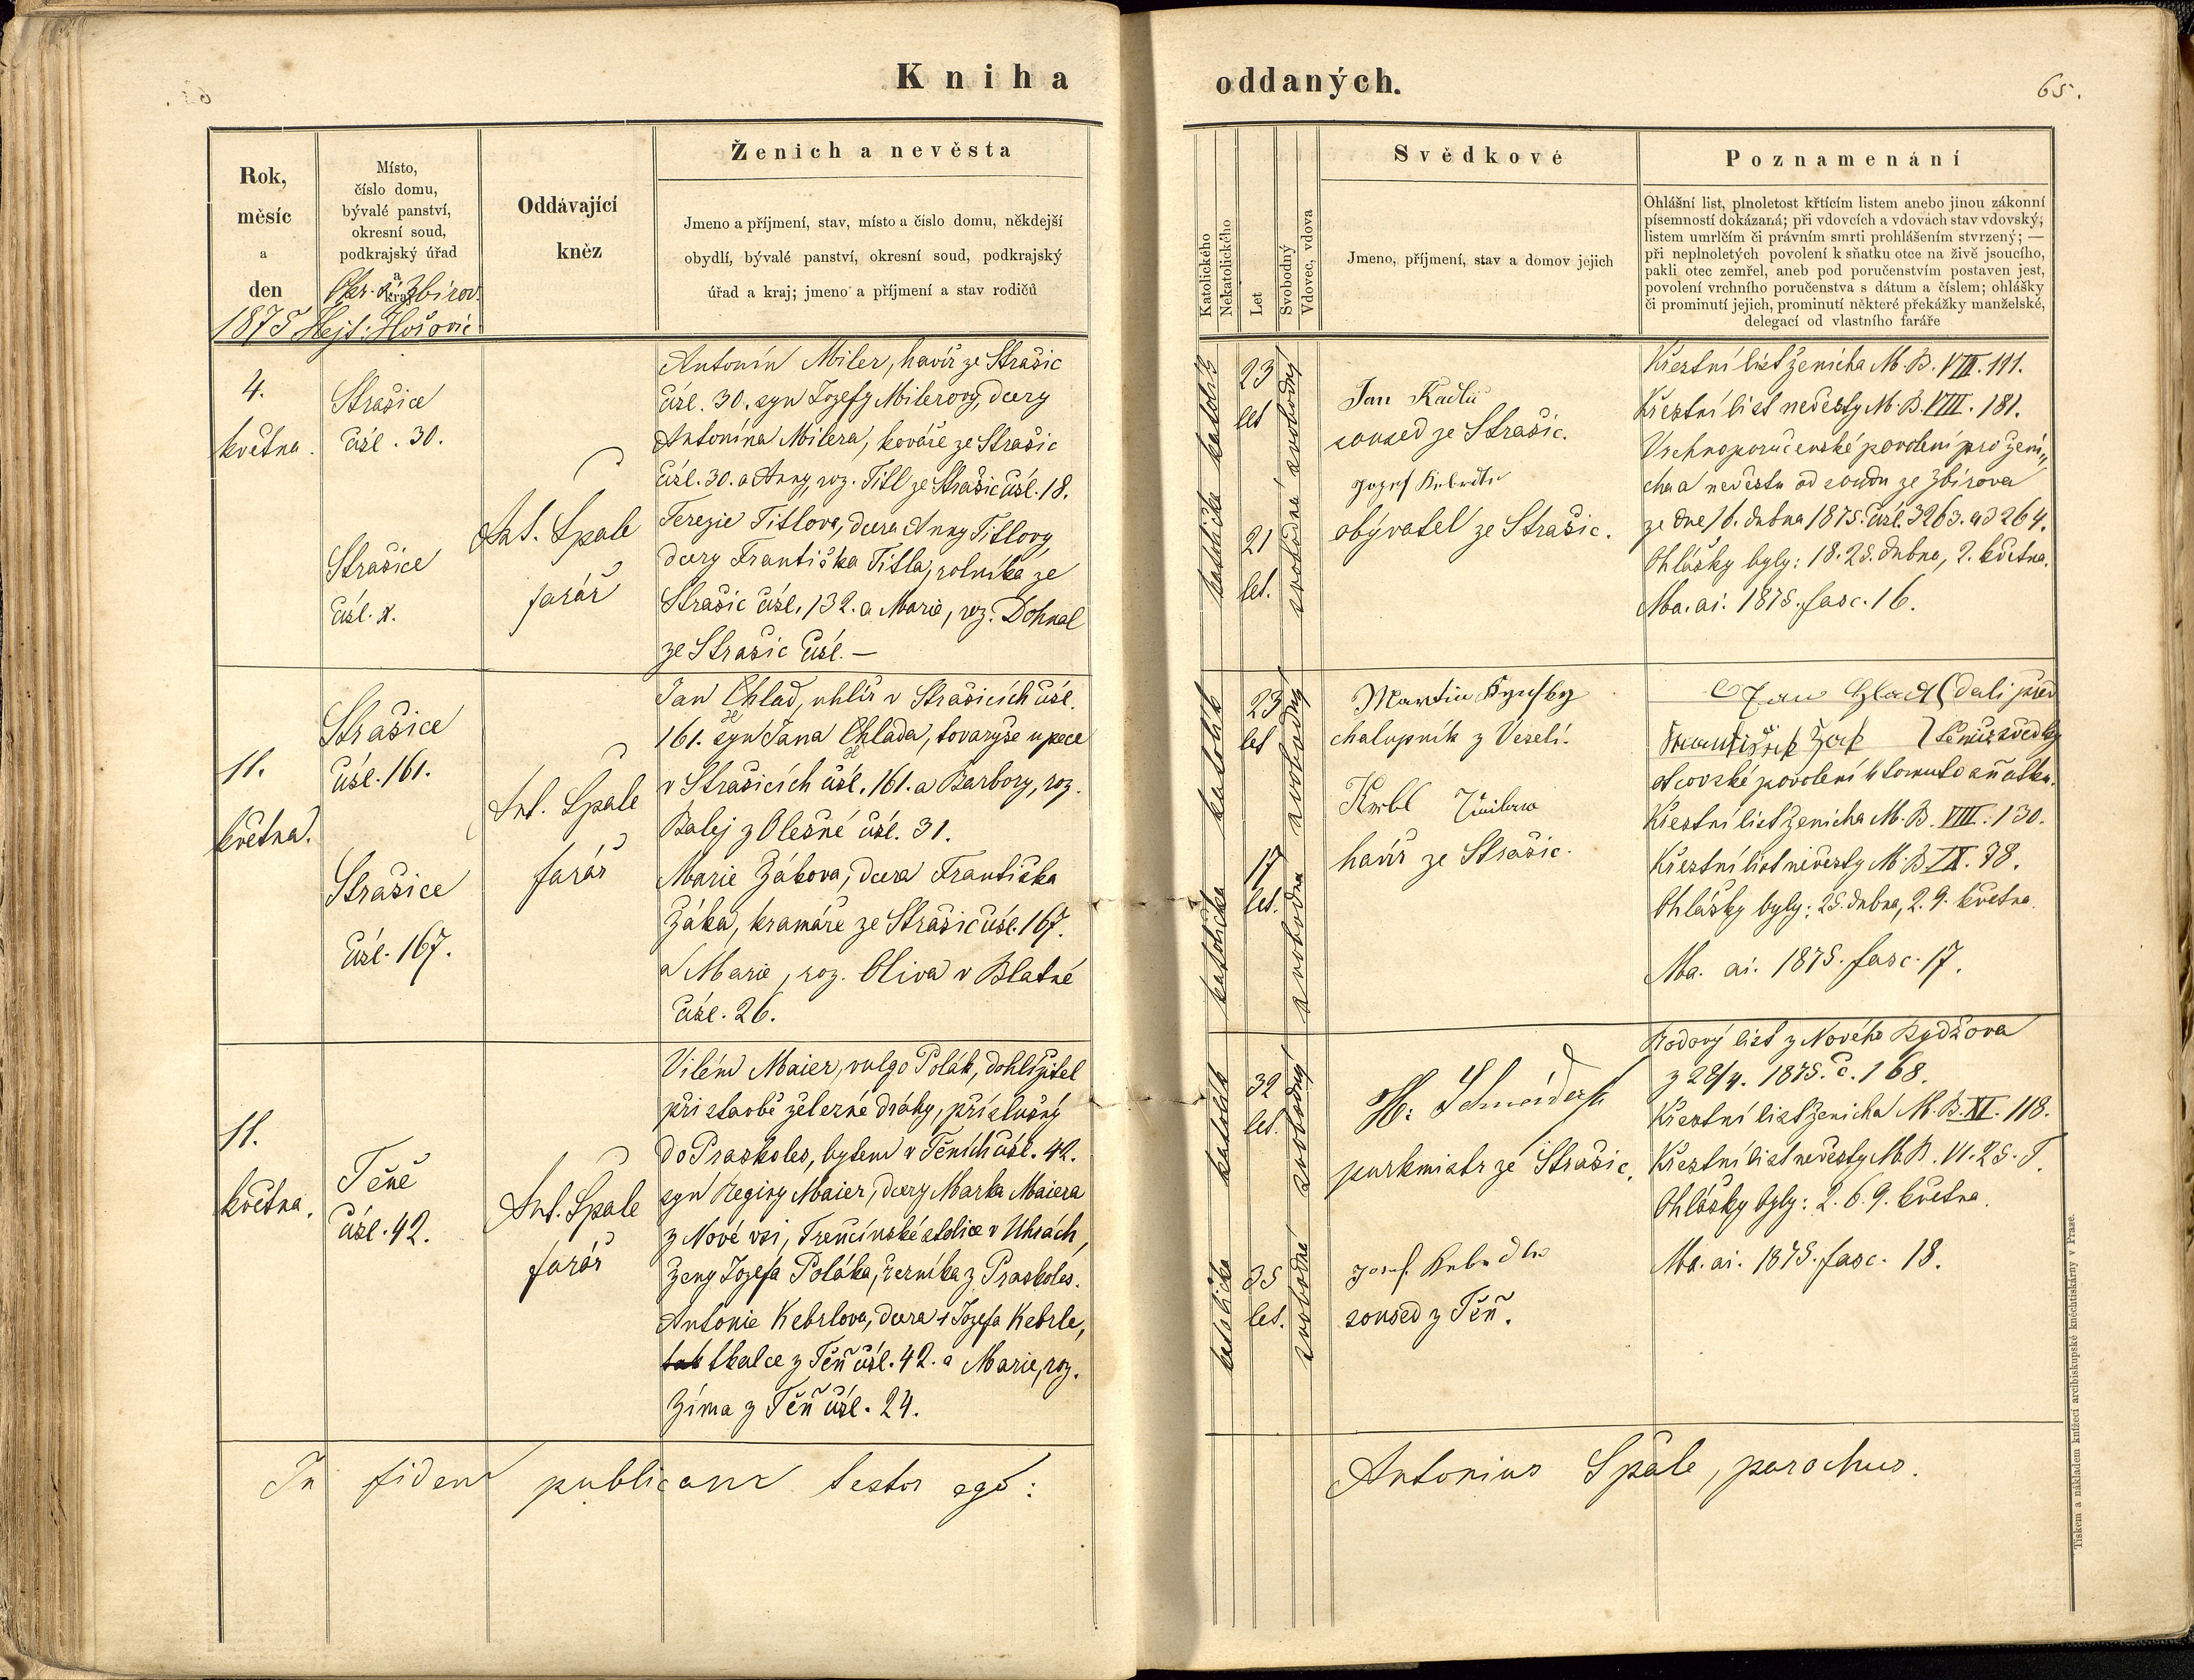 Kniha oddaných.
65.
Rok, měsíc a den
1875
Místo, číslo domu, bývalé panství, okresní soud, podkrajský úřad a kraj
Okr. Zbirov.
Hejt. Hořovic
Oddávající kněz
Ženich a nevěsta
Jmeno a příjmení, stav, místo a číslo domu, někdejší
obydlí, bývalé panství, okresní soud, podkrajský
úřad a kraj; jmeno a příjmení a stav rodičů
Katolického
Nekatolického
Let
Svobodný
Vdovec, vdova
Svědkové
Jmeno, příjmení, stav a domov jejich
Poznamenání
Ohlášní list, plnoletost křtícím listem anebo jinou zákonní
písemností dokázaná; při vdovcích a vdovách stav vdovský;
listem umrlčím či právním smrti prohlášením stvrzený; —
při neplnoletých povolení k sňatku otce na živě jsoucího,
pakli otec zemřel, aneb pod poručenstvím postaven jest,
povolení vrchního poručenstva s dátum a číslem; ohlášky
či prominutí jejich, prominutí některé překážky manželské,
delegací od vlastního faráře
4.
května.
Strašice
čísl. 30.
Strašice
čísl. x.
Ant. Spale
farář
Antonín Miler, havíř ze Strašic
čísl. 30. syn Jozefy Milerovy, dcery
Antonína Milera, kováře ze Strašic
čísl. 30. a Anny, roz. Titl ze Strašic čísl. 18.
Terezie Titlova, dcera Anny Titlovy,
dcery Františka Titla, rolníka ze
Strašic čísl. 132. a Marie, roz. Dohnal
ze Strašic čísl. —
katolík
katolička
23
let
21
let.
svobodný
svobodná
Jan Kadlec
soused ze Strašic.
Jozef Kebrdle
obývatel ze Strašic.
Křestní list ženicha M. B. VIII. 111.
Křestní list nevěsty M. B. VIII. 181.
Vrchnoporučenské povolení pro ženi„
cha a nevěstu od soudu ze Zbirova
ze dne 16. dubna 1875. čísl. 3263. a 3264.
Ohlášky byly: 18. 25. dubna, 2. května.
Ma. ai. 1875. fasc. 16.
11.
května.
Strašice
čísl. 161.
Strašice
čísl. 167.
Ant. Spale
farář
Jan Chlad, uhlíř v Strašicích čísl.
161. syn Jana Chlada, tovaryše u pece
v Strašicích čísl. 161. a Barbory, roz.
Balej z Olešné čísl. 31.
Marie Žákova, dcera Františka
Žáka, kramáře ze Strašic čísl. 167.
a Marie, roz. Oliva v Blatné
čísl. 26.
katolík
katolička
23
let
17
let.
svobodný
svobodna
Martin
chalupník z Veselí.
Krbl
havíř ze Strašic.
Jan Hlad dali před
František Žák svědky
otcovské povolení k tomuto sňatku.
Křestní list ženicha M. B. VIII. 130.
Křestní list nevěsty M. B. IX. 78.
Ohlášky byly: 25. dubna, 2. 9. května.
Ma. ai. 1875. fasc. 17.
11.
května.
Těně
čísl. 42.
Ant. Spale
farář
Vilém Maier, vulgo Polák, dohližitel
při stavbě železné dráhy, příslušný
do Praskoles, bytem v Těních čísl. 42.
syn Reginy Maier, dcery Marka Maiera
z Nové vsi, Trenčínské stolice v Uhrách,
ženy Jozefa Poláka, řezníka z Praskoles.
Antonie Kebrlova, dcera † Jozefa Kebrle,
tkalce z Těň čísl. 42. a Marie, roz.
Zíma z Těň čísl. 24.
katolík
katolička
32
let.
35
let.
svobodný
svobodné
H. Schneider
purkmistr ze Strašic.
Josef Kebrdle
soused z Těň.
Rodový list z Nového Bydžova
z 28/4. 1875. č. 168.
Křestní list ženicha M. B. XI. 118.
Křestní list nevěsty M. B. VI. 25. T.
Ohlášky byly: 2. 6. 9. května.
Ma. ai. 1875. fasc. 18.
In fidem publicam testor ego: Antonius Spale, parochus.
Tiskem a nákladem knížecí arcibiskupské kněhtiskárny v Praze.